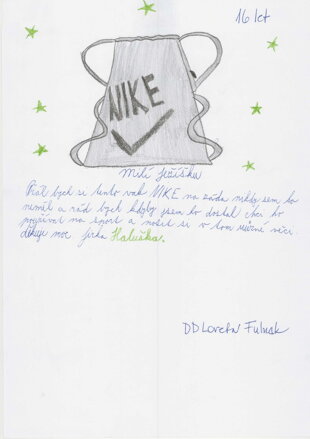 16 let
NIKE
Milí ježíšku
Přál bych si tento vak NIKE na záda nikdy sem ho
neměl a rád bych kdyby jsem ho dostal chci ho
používat na sport a nosit si v tom různé věci.
děkuji moc Jirka Haluška.
DD Loreta Fulnek